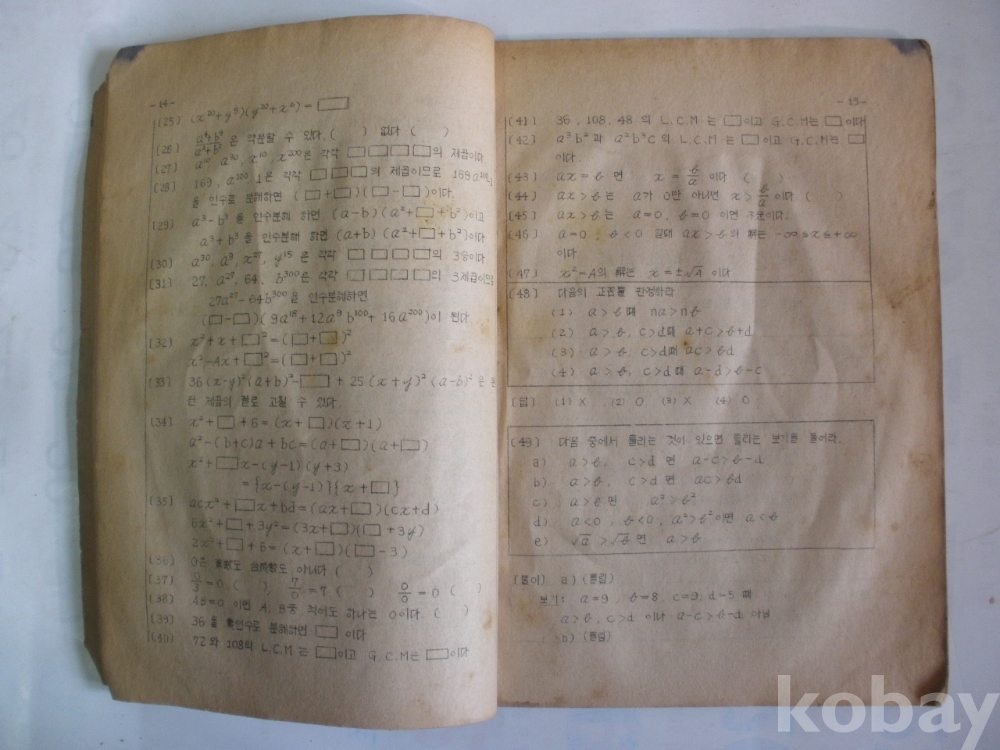 -14-
(25) (x²⁰+y⁵)(y²⁰+x⁶) = □
(26) 은 약분할 수 있다. ( ) 없다 ( )
(27) x¹⁰, x²⁰⁰은 각각 □ □ □ □의 제곱이다
(28) 169, a¹⁰⁰, 1은 각각 □ □ □의 제곱이므로
을 인수로 분해하면 (□+□)(□-□)이다.
(29) a³-b³을 인수분해 하면 (a-b)(a²+□+b²)이고
a³+b³을 인수분해 하면 (a+b)(a²+□+b²)이다
(30) a³⁰, a⁹, x²⁷, y¹⁵은 각각 □ □ □ □의 3승이다
(31) 27, a²⁷, 64, b³⁰⁰은 각각 □ □ □ □의 3제곱이므로
27a²⁷-64b³⁰⁰을 인수분해하면
(□-□)(9a¹⁸+12a⁹b¹⁰⁰+16a²⁰⁰)이 된다.
(32) x²+x+□²=(□+□)²
x²-Ax+□²=(□+□)²
(33) 36(x-y)²(a+b)²-□+25(x+y)²(a-b)²은
전 제곱의 꼴로 고칠 수 있다.
(34) x²+□+6=(x+□)(x+1)
a²-(b+c)a+bc=(a+□)(a+□)
x²+□x-(y-1)(y+3)
={x-(y-1)}{x+□}
(35) acx²+□x+bd=(ax+□)(cx+d)
6x²+□+3y²=(3x+□)(□+3y)
2x²+□+6=(x+□)(□-3)
(36) 0은 도 도 아니다 ( )
(37) 0/3=0 ( ) 7/0=7 ( ) 0/0=0 ( )
(38) AB=0 이면 A, B중 적어도 하나는 0이다. ( )
(39) 36을 素인수로 분해하면 □ 이다
(40) 72와 108의 L.C.M는 □이고 G.C.M는 □이다
-15-
(41) 36, 108, 48의 L.C.M는 □이고 G.C.M는 □이다
(42) a³b²과 a²b³c의 L.C.M는 □이고 G.C.M는 □
이다.
(43) ax=b 면 x=b/a 이다 ( )
(44) ax>b는 a가 0만 아니면 x>b/a 이다 (
(45) ax>b는 a=0, b=0 이면 이다.
(46) a=0, b<0 일때 ax>b의 解는 -∞≤x≤+∞
이다
(47) x²=A의 解는 x=±√A 이다
(48) 다음의 를 판정하라
(1) a>b 때 na>nb
(2) a>b, c>d때 a+c>b+d
(3) a>b, c>d때 ac>bd
(4) a>b, c>d때 a-d>b-c
[답] (1) X (2) O (3) X (4) O
(49) 다음 중에서 틀리는 것이 있으면 틀리는 보기를 들어라.
a) a>b, c>d 면 a-c>b-d
b) a>b, c>d 면 ac>bd
c) a>b면 a²>b²
d) a<0, b<0, a²>b²이면 a<b
e) √a>√b면 a>b
[풀이] a) (틀림)
보기: a=9, b=8, c=9, d=5 때
a>b, c>d 이나 a-c>b-d 아님
b) (틀림)
kobay